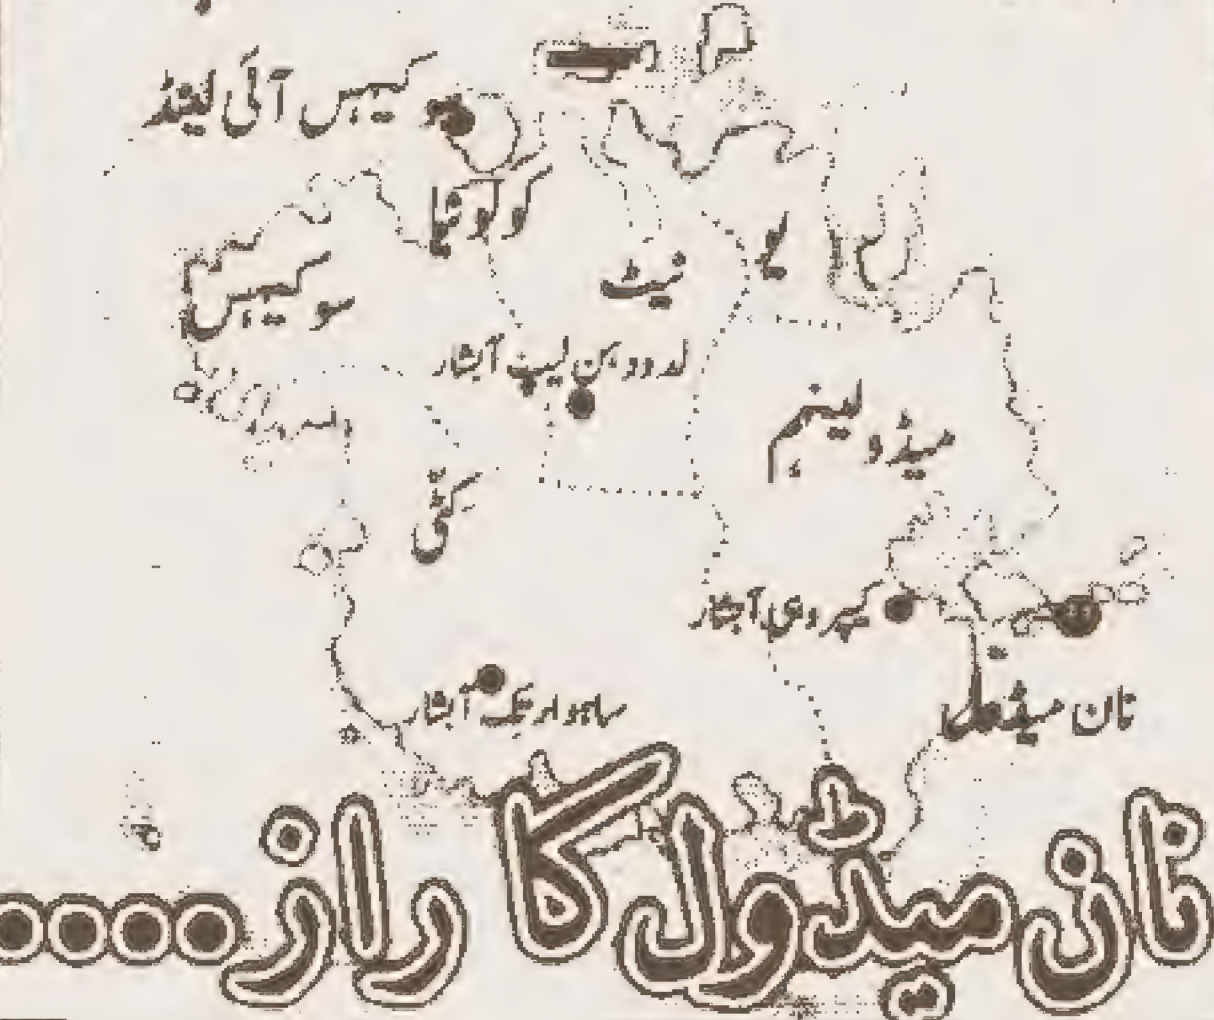 سیہس آئی لینڈ
ولوشا
سو سیہس
نیٹ
ہے
لدروو، کن لیپ آبشار
میڈولینہم
کٹی
سپروی آبشار
سابو لریک آبشار
نان میڈول
نان میڈول کا راز....